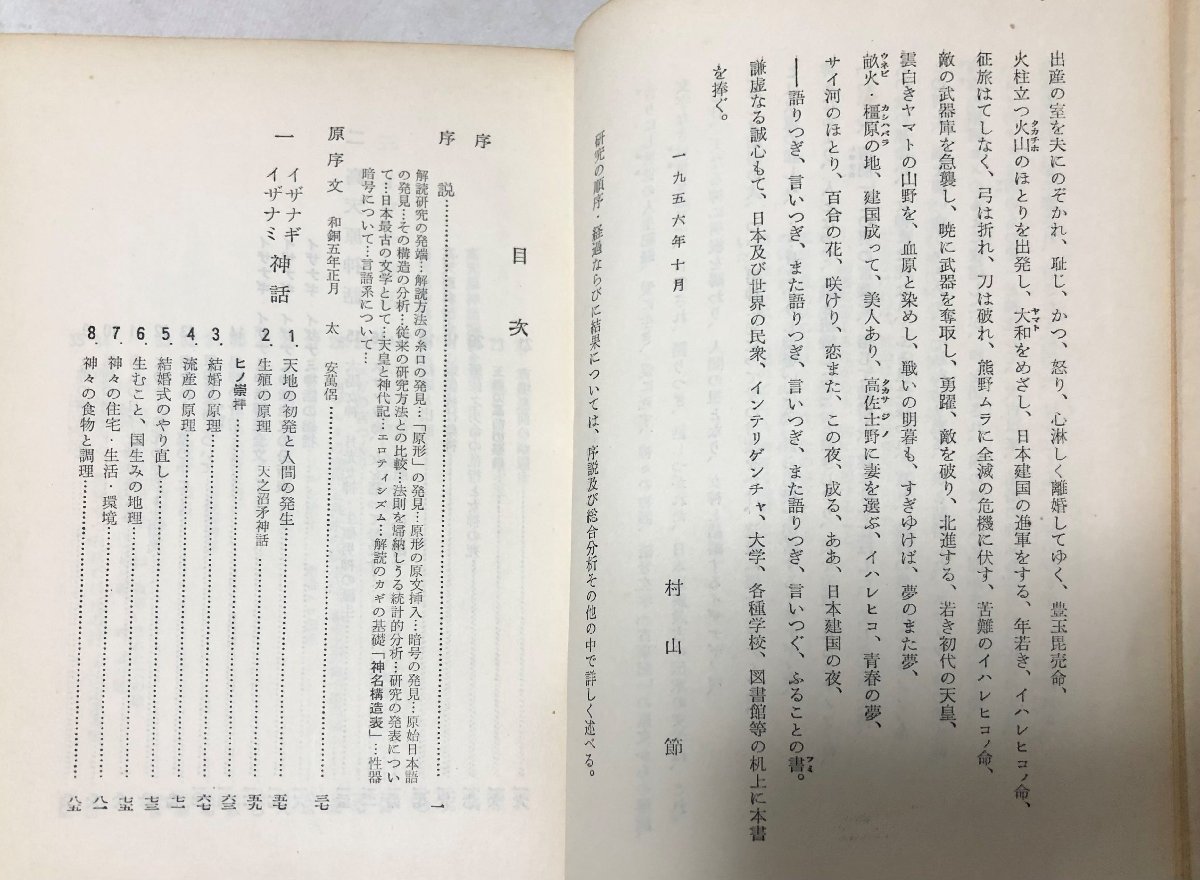 出産の室を夫にのぞかれ、耻じ、かつ、怒り、心淋しく離婚してゆく、豊玉毘売命、
火柱立つ火山のほとりを出発し、大和をめざし、日本建国の進軍をする、年若き、イハレヒコノ命、
タカチホ
ヤマト
征旅はてしなく、弓は折れ、刀は破れ、熊野ムラに全滅の危機に伏す、苦難のイハレヒコノ命、
敵の武器庫を急襲し、暁に武器を奪取し、勇躍、敵を破り、北進する、若き初代の天皇、
雲白きヤマトの山野を、血原と染めし、戦いの明暮も、すぎゆけば、夢のまた夢、
畝火・橿原の地、建国成って、美人あり、高佐士野に妻を選ぶ、イハレヒコ、青春の夢、
ウネビ
カシハバラ
タカサジノ
サイ河のほとり、百合の花、咲けり、恋また、この夜、成る、ああ、日本建国の夜、
――語りつぎ、言いつぎ、また語りつぎ、言いつぎ、また語りつぎ、言いつぐ、ふることの書。
フミ
謙虚なる誠心もて、日本及び世界の民衆、インテリゲンチャ、大学、各種学校、図書館等の机上に本書
を捧ぐ。
一九五六年十月
村山節
研究の順序・経過ならびに結果については、序説及び総合分析その他の中で詳しく述べる。
目次
序
序説……一
解読研究の発端…解読方法の糸口の発見…「原形」の発見…原形の原文挿入…暗号の発見…原始日本語
の発見…その構造の分析…従来の研究方法との比較…法則を帰納しうる統計的分析…研究の発表につい
て…日本最古の文学として…天皇と神代記…エロティシズム…解読のカギの基礎「神名構造表」…性器
暗号について…言語系について…
原序文 和銅五年正月 太安萬侶……三七
一 イザナギ イザナミ 神話
1. 天地の初発と人間の発生……五七
2. 生殖の原理 天之沼矛神話……五九
ヒノ崇拝……六三
3. 結婚の原理……六七
4. 流産の原理……七一
5. 結婚式のやり直し……七三
6. 生むこと、国生みの地理……七五
7. 神々の住宅・生活・環境……八一
8. 神々の食物と調理……八五